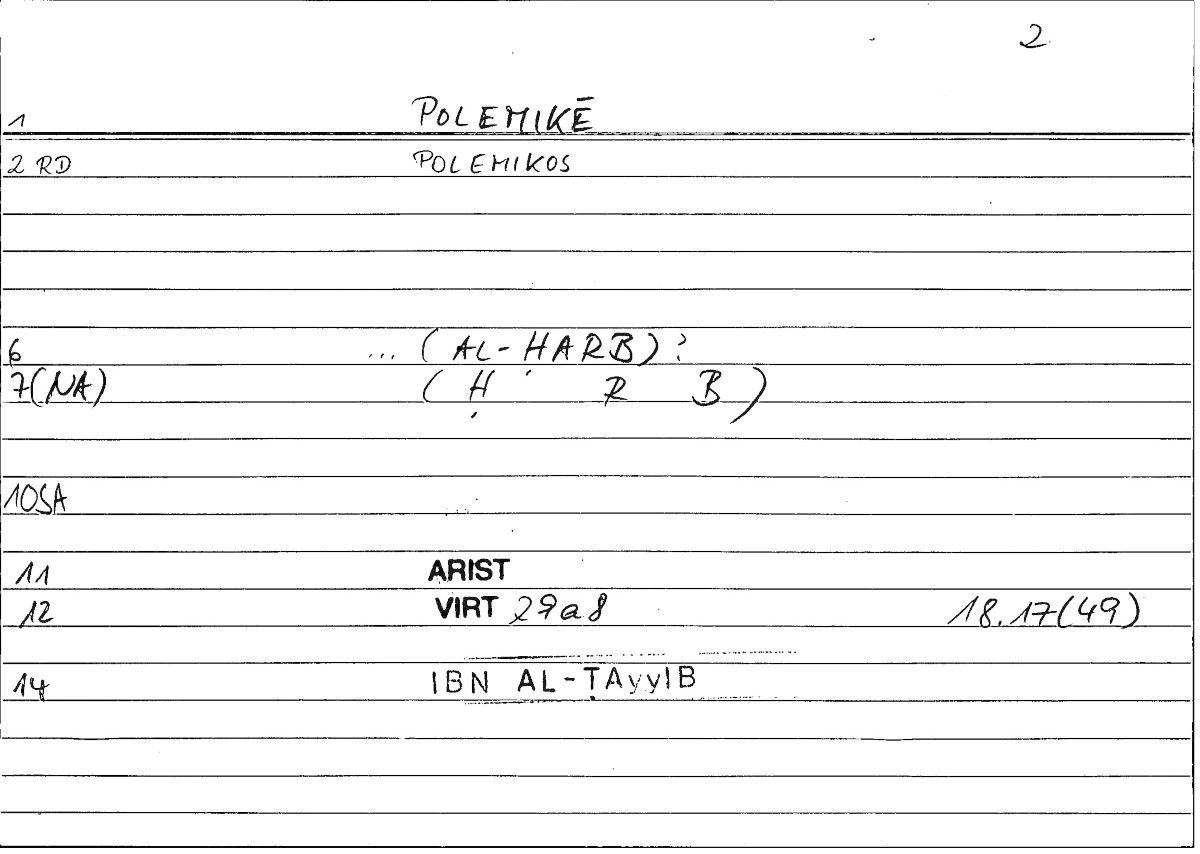 2
1 POLEMIKĒ
2 RD POLEMIKOS
6 ... (AL-ḤARB)?
7(NA) (Ḥ R B)
10SA
11 ARIST
12 VIRT 29a8 18.17(49)
14 IBN AL-ṬAyyIB